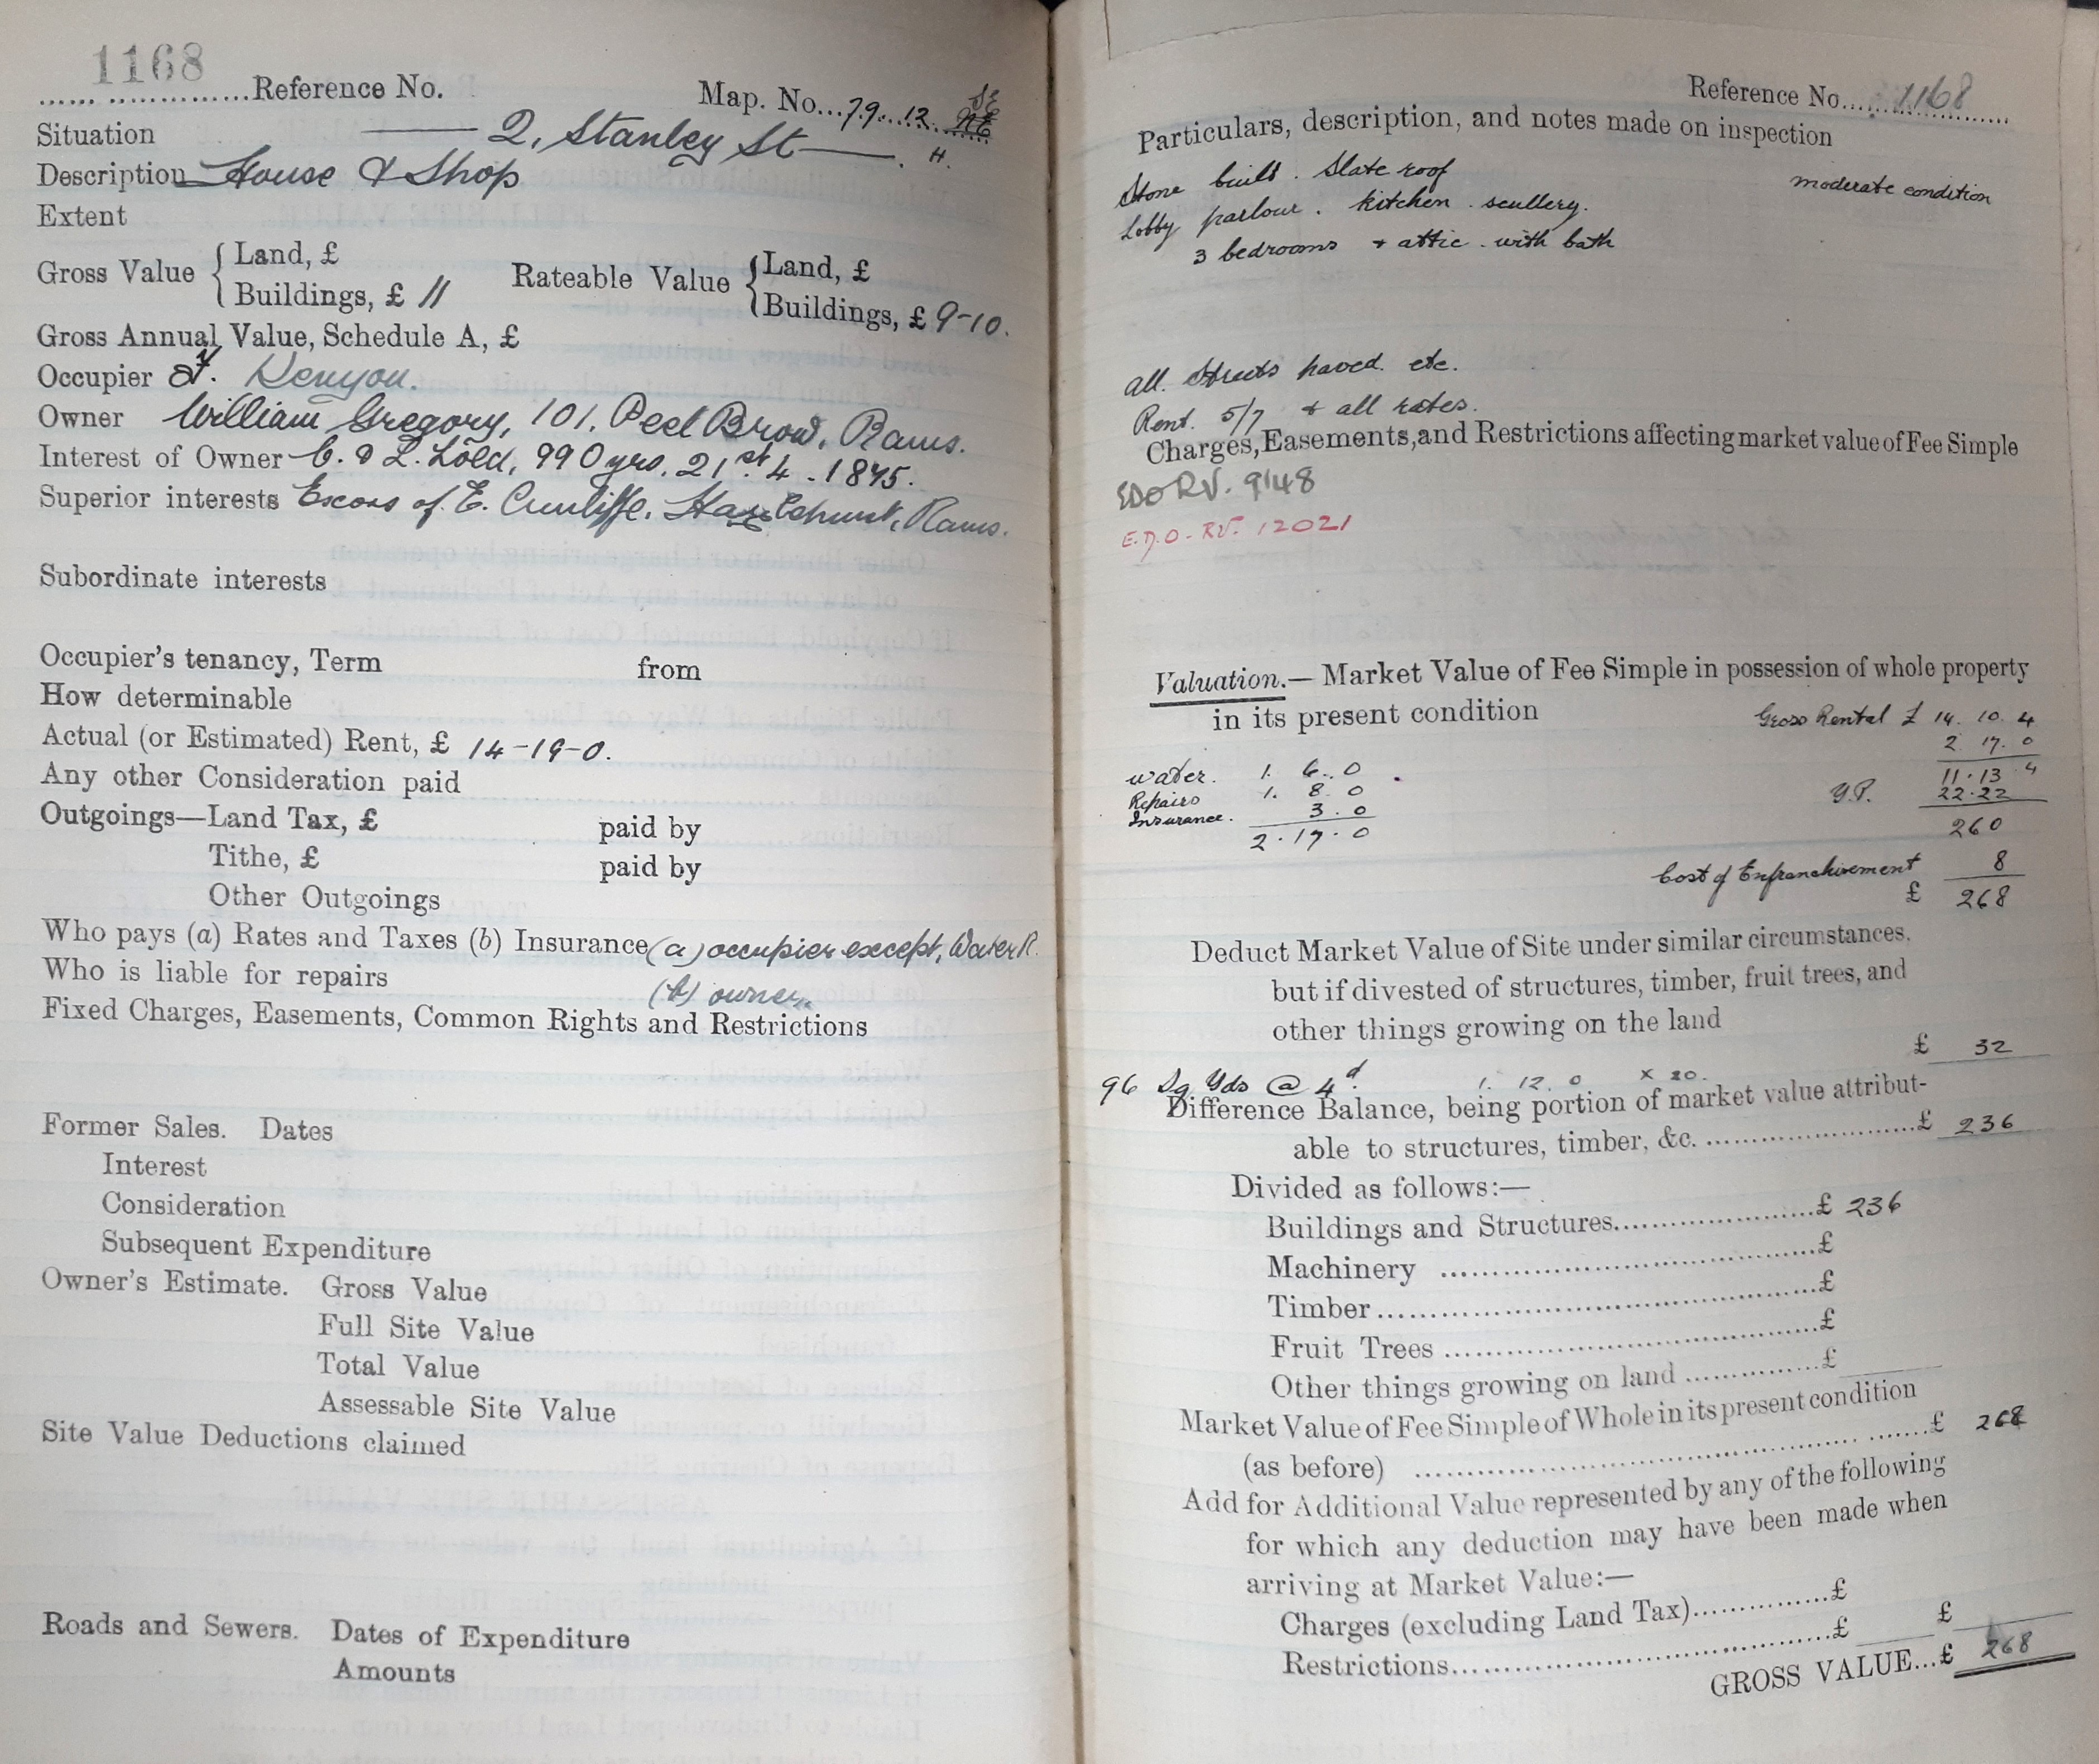 1168
...... ...............Reference No.
Map. No...79...12... SE NE
Situation 2, Stanley St . H.
Description House & Shop
Extent
Gross Value { Land, £
Buildings, £ 11
Rateable Value { Land, £
Buildings, £ 9-10.
Gross Annual Value, Schedule A, £
Occupier Kenyon.
Owner William Gregory, 101, Peel Brow, Rams.
Interest of Owner C. & L. Lold, 990 yrs. 21st. 4. 1875.
Superior interests Excors of E. Cunliffe, Hazlehurst, Rams.
Subordinate interests
Occupier's tenancy, Term from
How determinable
Actual (or Estimated) Rent, £ 14-19-0.
Any other Consideration paid
Outgoings—Land Tax, £ paid by
Tithe, £ paid by
Other Outgoings
Who pays (a) Rates and Taxes (b) Insurance (a) occupier except, Water R.
Who is liable for repairs (b) owner
Fixed Charges, Easements, Common Rights and Restrictions
Former Sales. Dates
Interest
Consideration
Subsequent Expenditure
Owner's Estimate. Gross Value
Full Site Value
Total Value
Assessable Site Value
Site Value Deductions claimed
Roads and Sewers. Dates of Expenditure
Amounts
Reference No....1168
Particulars, description, and notes made on inspection
Stone built. Slate roof moderate condition
Lobby parlour. kitchen. scullery.
3 bedrooms + attic. with bath
all. Streets paved. etc.
Rent. 5/7 + all rates.
Charges, Easements, and Restrictions affecting market value of Fee Simple
EDO RV. 9148
E.D.O. RV. 12021
Valuation.— Market Value of Fee Simple in possession of whole property
in its present condition
Gross Rental £ 14. 10. 4
2. 17. 0
11. 13. 4
Y.P. 22.22
260
water. 1. 6. 0
Repairs 1. 8. 0
Insurance. 3. 0
2. 17. 0
Cost of Enfranchisement 8
£ 268
Deduct Market Value of Site under similar circumstances,
but if divested of structures, timber, fruit trees, and
other things growing on the land
£ 32
96 Sq Yds @ 4d. 1. 12. 0 x 20.
Difference Balance, being portion of market value attribut-
able to structures, timber, &c. ...........................£ 236
Divided as follows:—
Buildings and Structures.......................£ 236
Machinery ...........................................£
Timber..................................................£
Fruit Trees ..........................................£
Other things growing on land ...............£
Market Value of Fee Simple of Whole in its present condition
(as before) ..................................................£ 268
Add for Additional Value represented by any of the following
for which any deduction may have been made when
arriving at Market Value:—
Charges (excluding Land Tax)...............£
Restrictions..........................................£ £
GROSS VALUE...£ 268